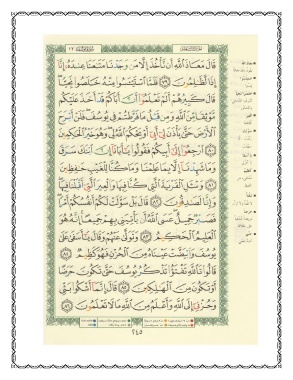 قَالَ مَعَاذَ ٱللَّهِ أَن نَّأْخُذَ إِلَّا مَن وَجَدْنَا مَتَٰعَنَا عِندَهُۥٓ إِنَّآ
إِذًا لَّظَٰلِمُونَ ٧٩ فَلَمَّا ٱسْتَيْـَٔسُوا۟ مِنْهُ خَلَصُوا۟ نَجِيًّا
قَالَ كَبِيرُهُمْ أَلَمْ تَعْلَمُوٓا۟ أَنَّ أَبَاكُمْ قَدْ أَخَذَ عَلَيْكُم
مَّوْثِقًا مِّنَ ٱللَّهِ وَمِن قَبْلُ مَا فَرَّطتُمْ فِى يُوسُفَ فَلَنْ أَبْرَحَ
ٱلْأَرْضَ حَتَّىٰ يَأْذَنَ لِىٓ أَبِىٓ أَوْ يَحْكُمَ ٱللَّهُ لِى وَهُوَ خَيْرُ ٱلْحَٰكِمِينَ
٨٠ ٱرْجِعُوٓا۟ إِلَىٰٓ أَبِيكُمْ فَقُولُوا۟ يَٰٓأَبَانَآ إِنَّ ٱبْنَكَ سَرَقَ
وَمَا شَهِدْنَآ إِلَّا بِمَا عَلِمْنَا وَمَا كُنَّا لِلْغَيْبِ حَٰفِظِينَ
٨١ وَسْـَٔلِ ٱلْقَرْيَةَ ٱلَّتِى كُنَّا فِيهَا وَٱلْعِيرَ ٱلَّتِىٓ أَقْبَلْنَا فِيهَا
وَإِنَّا لَصَٰدِقُونَ ٨٢ قَالَ بَلْ سَوَّلَتْ لَكُمْ أَنفُسُكُمْ أَمْرًا
فَصَبْرٌ جَمِيلٌ عَسَى ٱللَّهُ أَن يَأْتِيَنِى بِهِمْ جَمِيعًا إِنَّهُۥ هُوَ
ٱلْعَلِيمُ ٱلْحَكِيمُ ٨٣ وَتَوَلَّىٰ عَنْهُمْ وَقَالَ يَٰٓأَسَفَىٰ عَلَىٰ
يُوسُفَ وَٱبْيَضَّتْ عَيْنَاهُ مِنَ ٱلْحُزْنِ فَهُوَ كَظِيمٌ ٨٤
قَالُوا۟ تَٱللَّهِ تَفْتَؤُا۟ تَذْكُرُ يُوسُفَ حَتَّىٰ تَكُونَ حَرَضًا
أَوْ تَكُونَ مِنَ ٱلْهَٰلِكِينَ ٨٥ قَالَ إِنَّمَآ أَشْكُوا۟ بَثِّى
وَحُزْنِىٓ إِلَى ٱللَّهِ وَأَعْلَمُ مِنَ ٱللَّهِ مَا لَا تَعْلَمُونَ ٨٦
٢٤٥